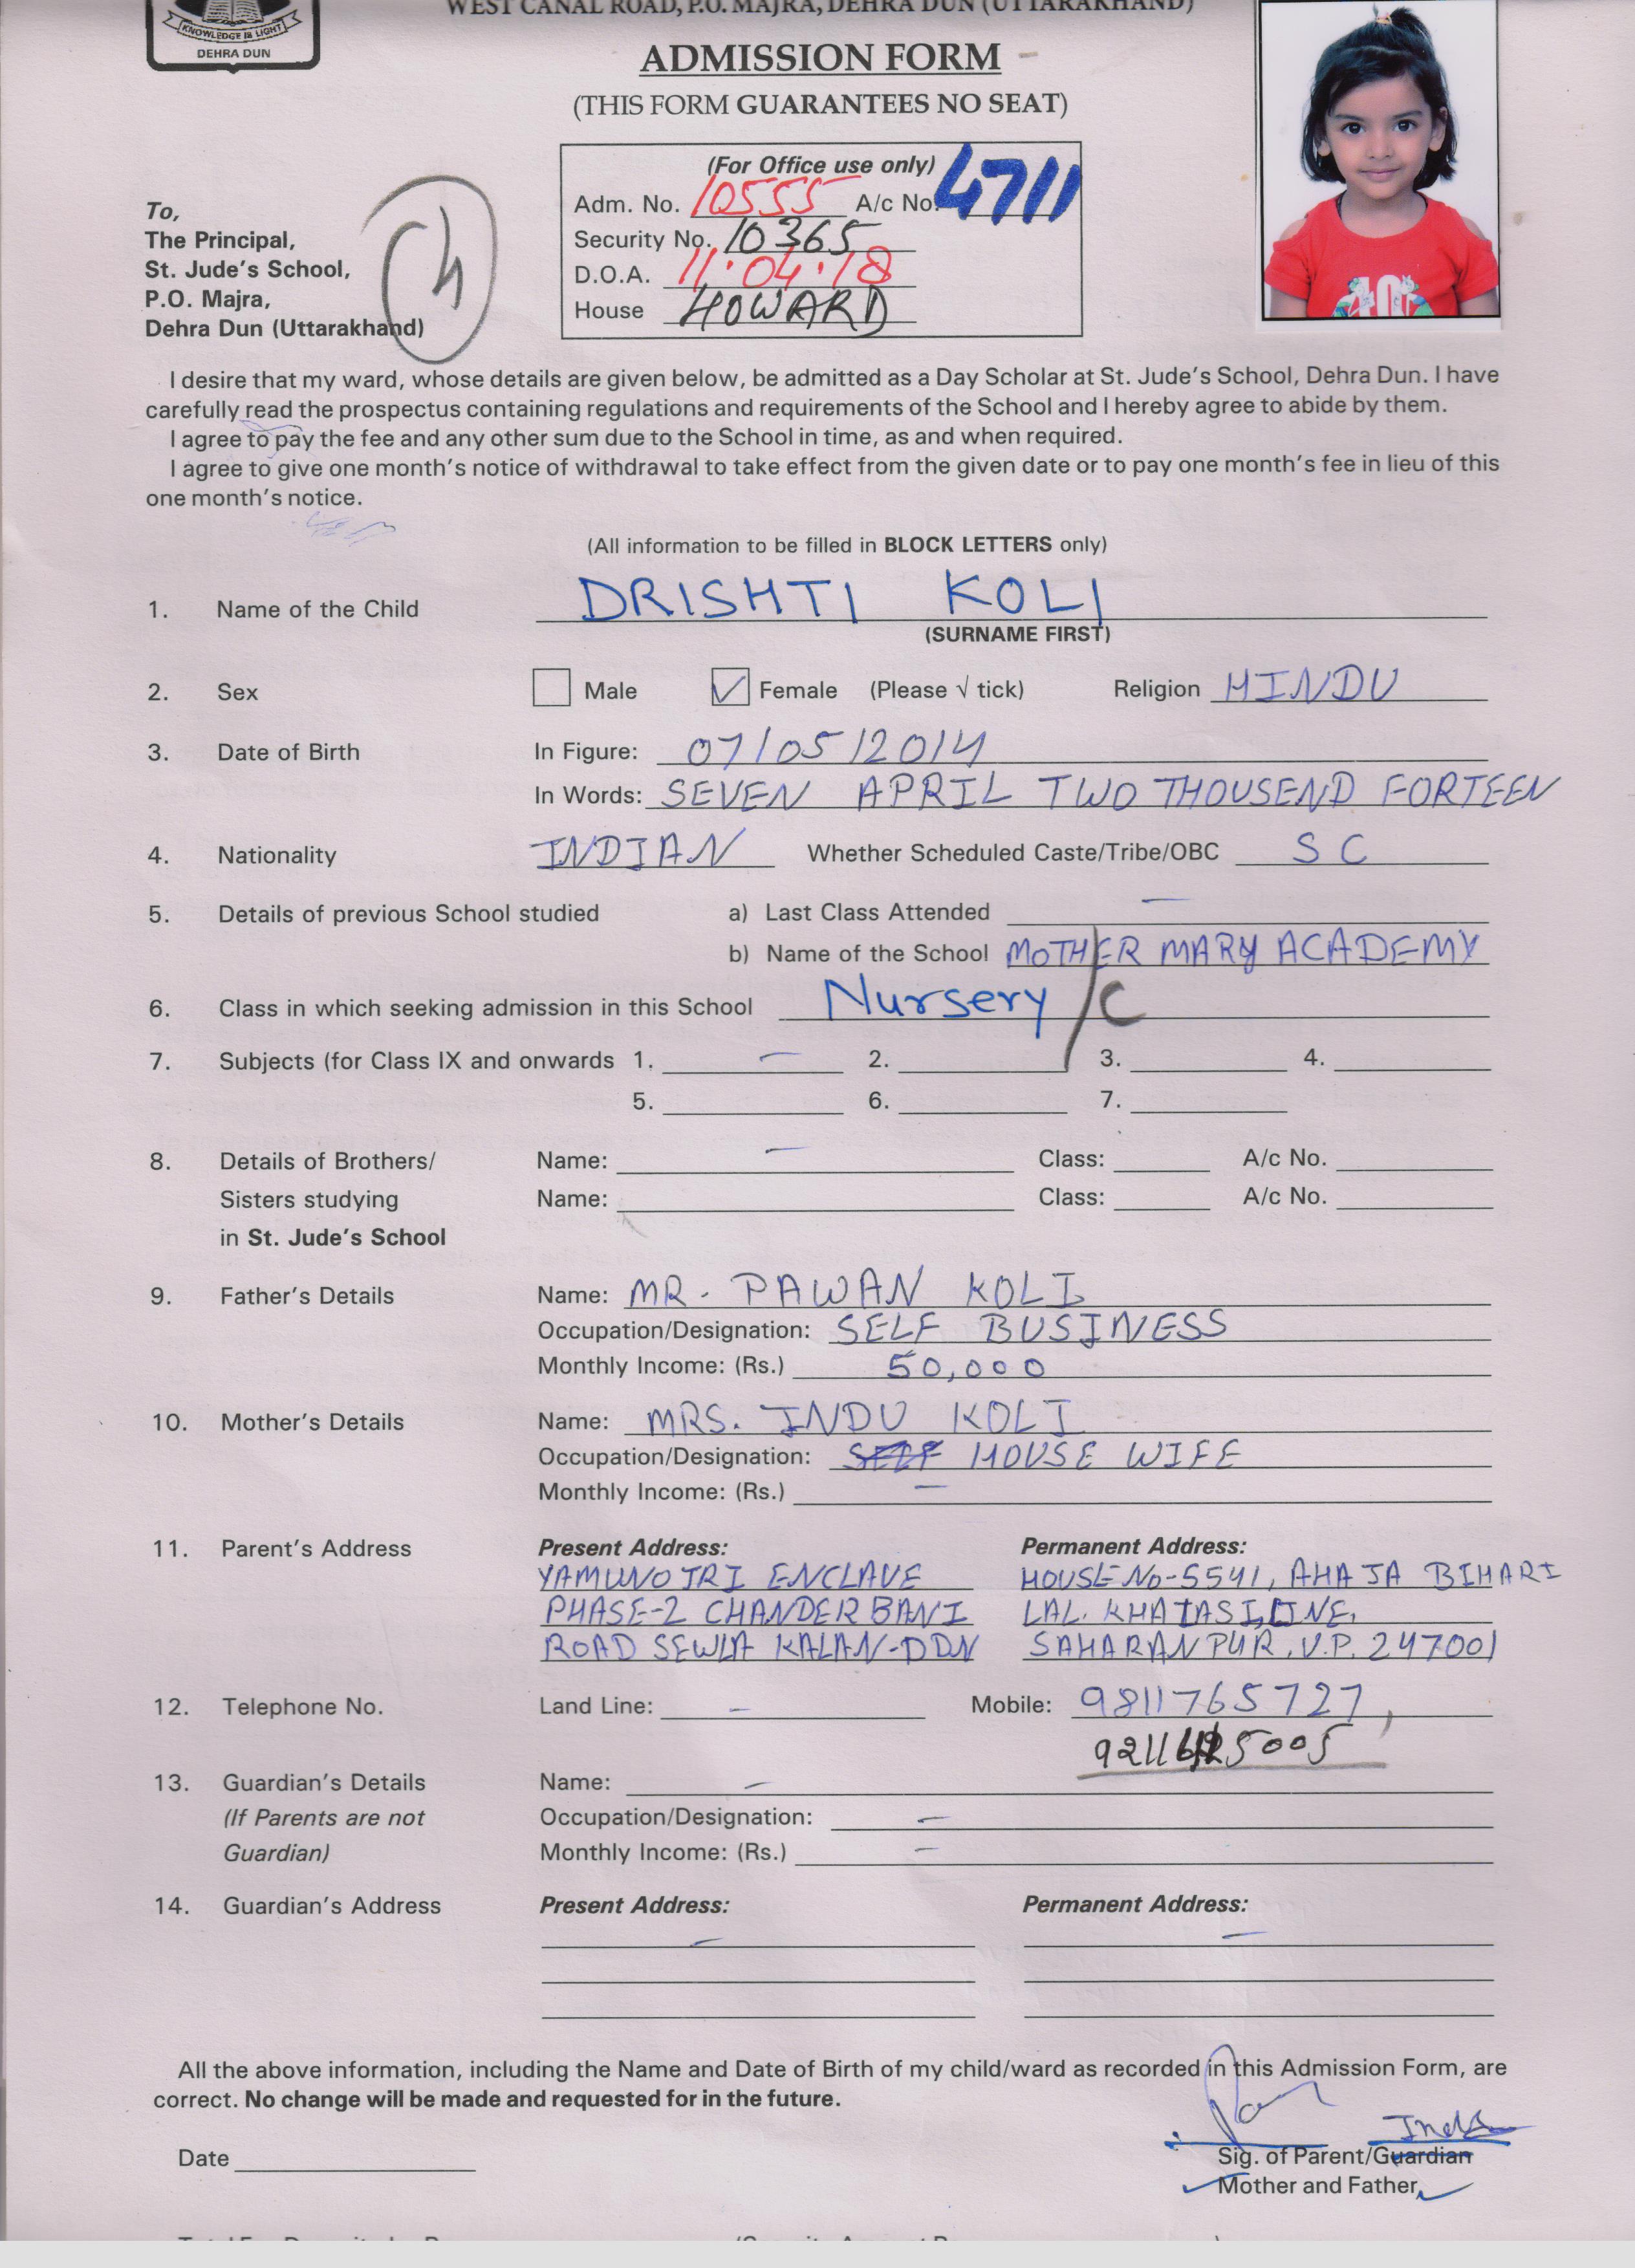 WEST CANAL ROAD, P.O. MAJRA, DEHRA DUN (UTTARAKHAND)
KNOWLEDGE IS LIGHT
DEHRA DUN
ADMISSION FORM
(THIS FORM GUARANTEES NO SEAT)
(For Office use only)
Adm. No. 10555 A/c No. 4711
Security No. 10365
D.O.A. 11.04.18
House HOWARD
To,
The Principal,
St. Jude's School,
P.O. Majra,
Dehra Dun (Uttarakhand)
I desire that my ward, whose details are given below, be admitted as a Day Scholar at St. Jude's School, Dehra Dun. I have
carefully read the prospectus containing regulations and requirements of the School and I hereby agree to abide by them.
I agree to pay the fee and any other sum due to the School in time, as and when required.
I agree to give one month's notice of withdrawal to take effect from the given date or to pay one month's fee in lieu of this
one month's notice.
(All information to be filled in BLOCK LETTERS only)
1. Name of the Child DRISHTI KOLI
(SURNAME FIRST)
2. Sex Male ✓ Female (Please √ tick) Religion HINDU
3. Date of Birth In Figure: 07/05/2014
In Words: SEVEN APRIL TWO THOUSEND FORTEEN
4. Nationality INDIAN Whether Scheduled Caste/Tribe/OBC SC
5. Details of previous School studied a) Last Class Attended –
b) Name of the School MOTHER MARY ACADEMY
6. Class in which seeking admission in this School Nursery / C
7. Subjects (for Class IX and onwards 1. – 2. 3. 4.
5. 6. 7.
8. Details of Brothers/ Name: – Class: A/c No.
Sisters studying Name: Class: A/c No.
in St. Jude's School
9. Father's Details Name: MR. PAWAN KOLI
Occupation/Designation: SELF BUSINESS
Monthly Income: (Rs.) 50,000
10. Mother's Details Name: MRS. INDU KOLI
Occupation/Designation: SELF HOUSE WIFE
Monthly Income: (Rs.) –
11. Parent's Address Present Address: Permanent Address:
YAMUNOTRI ENCLAVE HOUSE NO-5541, AHATA BIHARI
PHASE-2 CHANDERBANI LAL. KHATAS
ROAD SEWLA KALAN-DDN SAHARANPUR, U.P. 247001
12. Telephone No. Land Line: – Mobile: 9811765727,
13. Guardian's Details Name: –
(If Parents are not Occupation/Designation: –
Guardian) Monthly Income: (Rs.) –
14. Guardian's Address Present Address: Permanent Address:
– –
All the above information, including the Name and Date of Birth of my child/ward as recorded in this Admission Form, are
correct. No change will be made and requested for in the future.
Date
Sig. of Parent/Guardian
Mother and Father